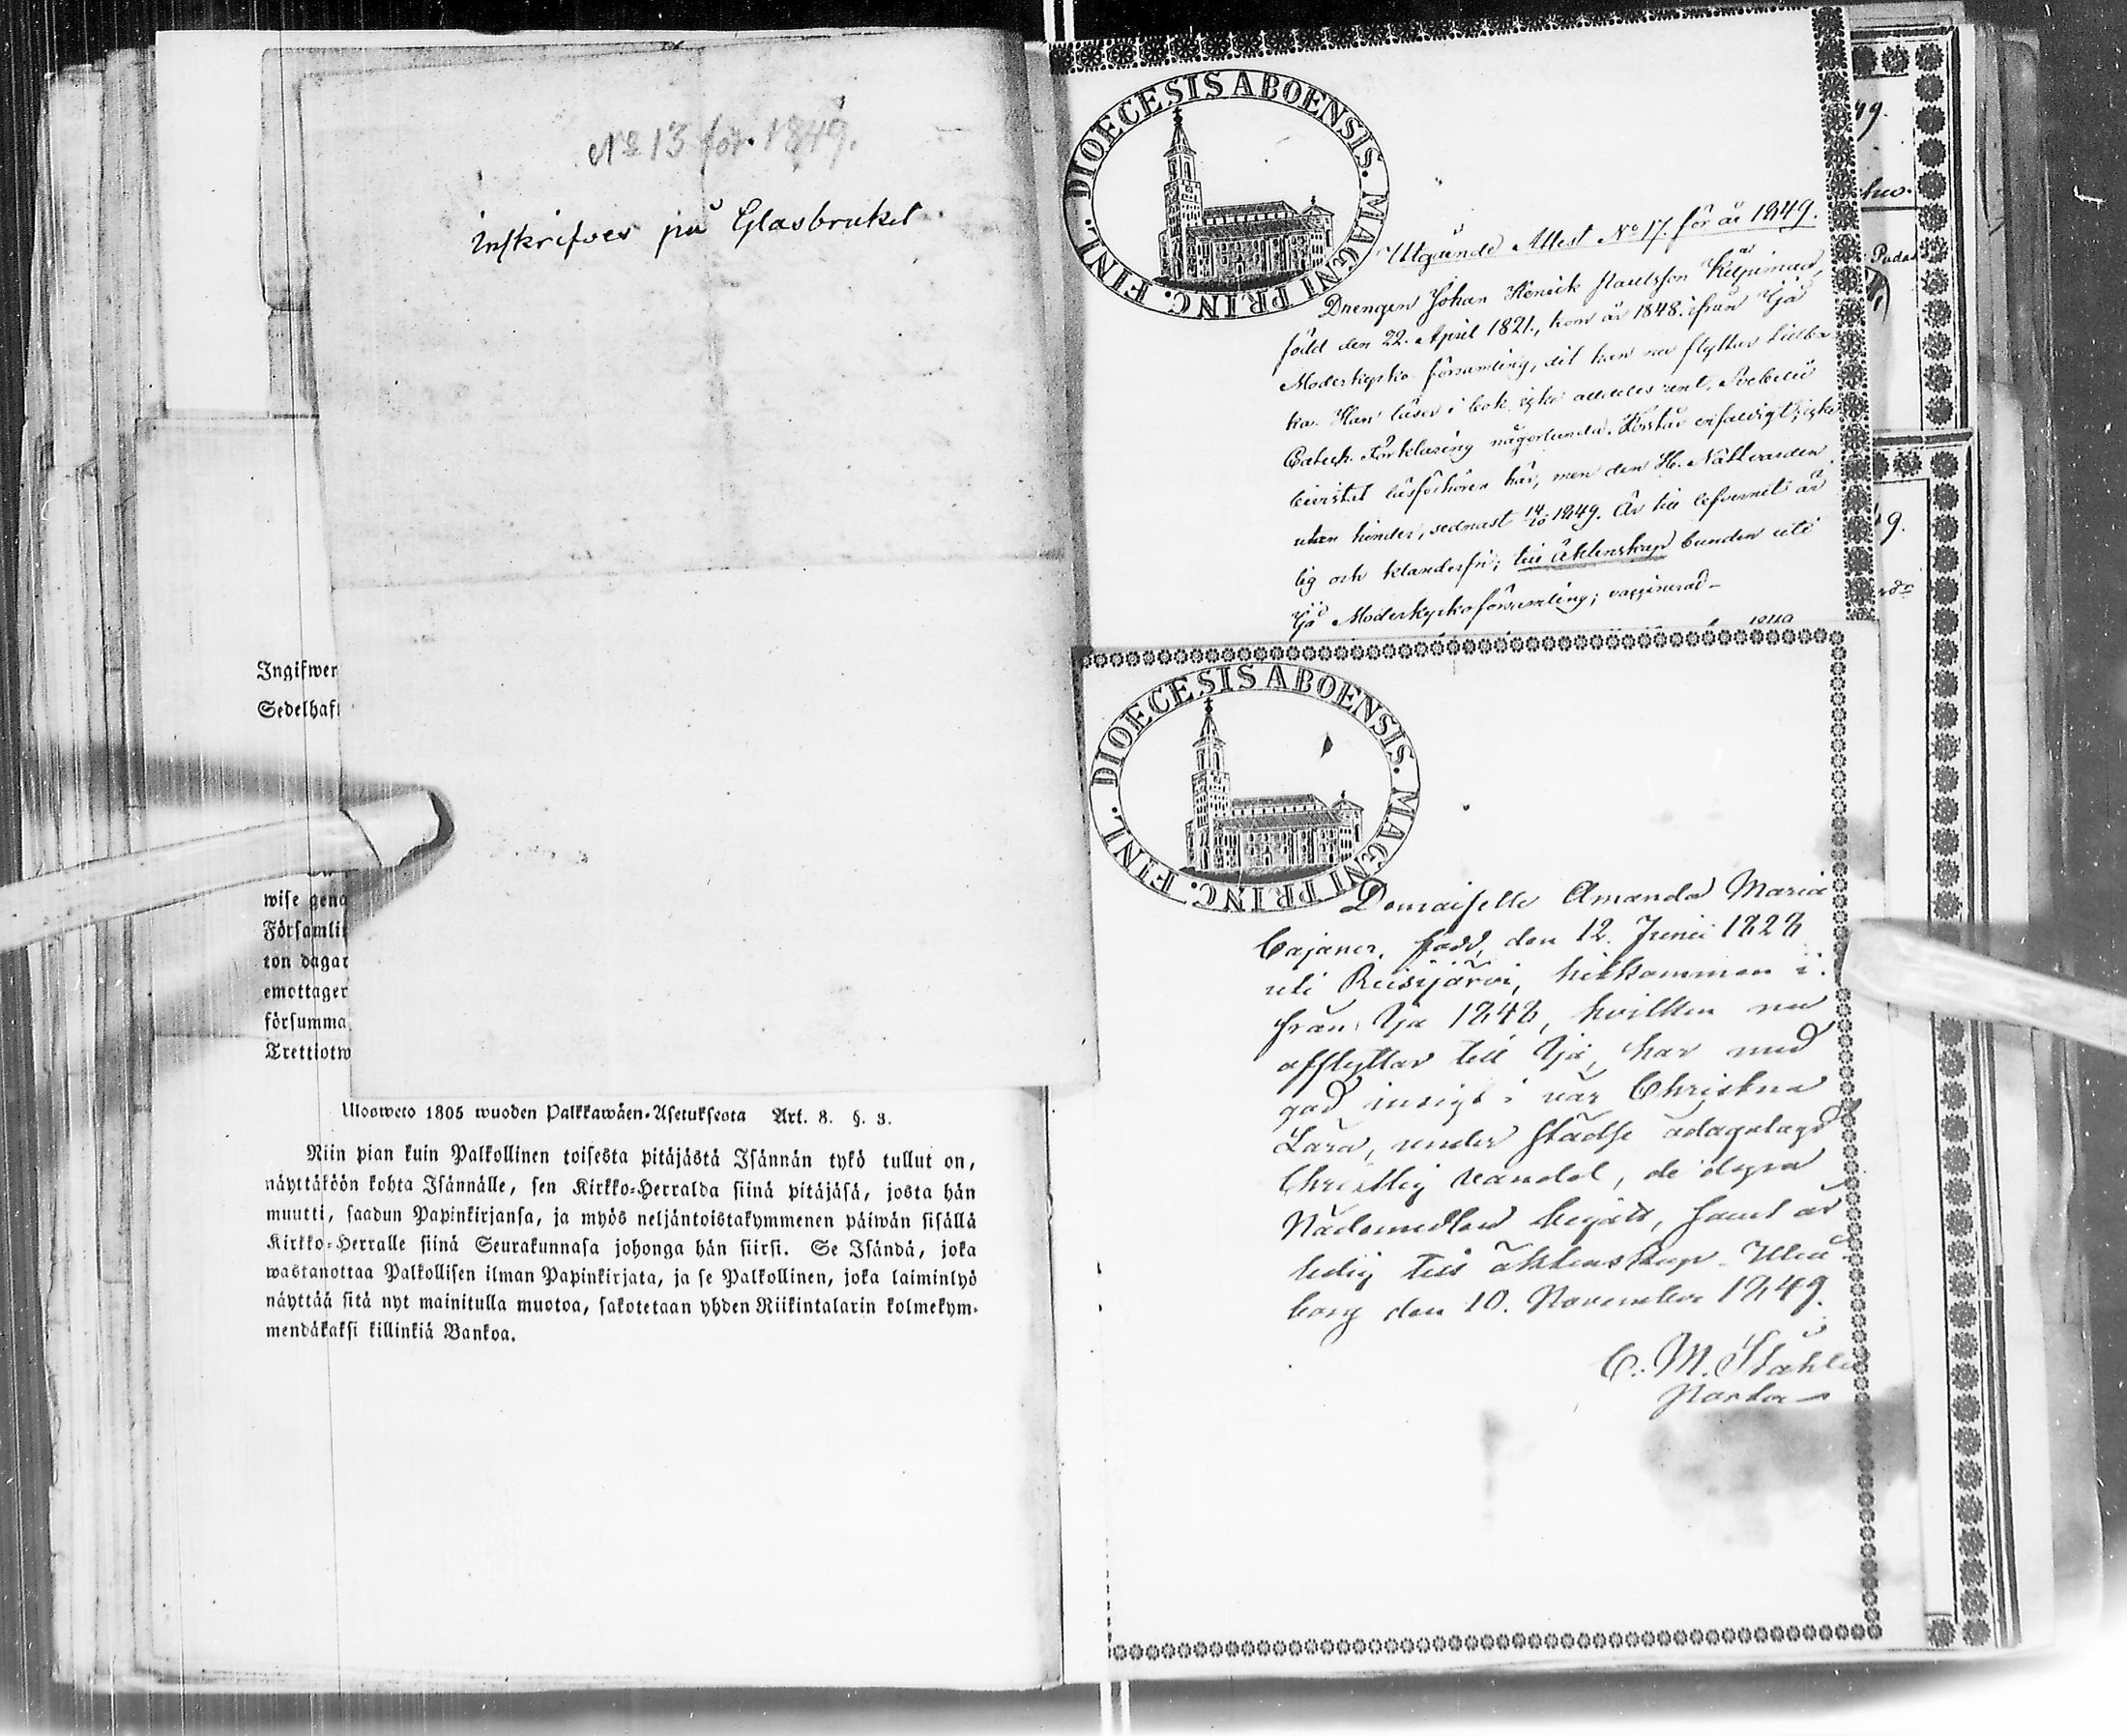 No 13 för 1849.
Inskrifves på Glasbruket
Ingifwer
Sedelhaf
wise geno
Församlin
ton dagar
emottager
försumma
Trettiotw
Ulosweto 1805 wuoden Palkkawäen-Asetuksesta Art. 8. §. 3.
Niin pian kuin Palkollinen toisesta pitäjästä Isännän tykö tullut on,
näyttäköön kohta Isännälle, sen Kirkko-Herralda siinä pitäjäsä, josta hän
muutti, saadun Papinkirjansa, ja myös neljäntoistakymmenen päiwän sisällä
Kirkko-Herralle siinä Seurakunnasa johonga hän siirsi. Se Isändä, joka
wastanottaa Palkollisen ilman Papinkirjata, ja se Palkollinen, joka laiminlyö
näyttää sitä nyt mainitulla muotoa, sakotetaan yhden Riikintalarin kolmekym-
mendäkaksi killinkiä Bankoa.
DIOECESIS ABOENSIS. MAGNI PRINC. FINL.
Utgående Attest No 17 för år 1849.
Drengen Johan Henrik
född den 22. April 1821., kom år 1848. ifrån Ijå
Moderkyrko församling, dit han nu flyttar tillba-
ka. Han läser i bok icke alldeles rent, Svebelii
Catech. Förklaring någorlunda. Förstår enfaldigt; icke
bevistat läsförhören här, men den H. Nattvarden
utan hinder, sednast 14/10 1849. Är till lefvernet är-
lig och klanderfri; till äktenskap bunden uti
Ijå Moderkyrkoförsamling; vaccinerad-
DIOECESIS ABOENSIS. MAGNI PRINC. FINL.
Demoiselle Amanda Maria
Cajaner, född den 12. Junii 1828
uti Reisjärvi, hitkommen i-
från Ijå 1848, hvilken nu
afflyttar till Ijå, har med
god insigt i vår Christna
Lära, under städse ådagalagd
Christlig vandel, de dyra
Nådemedlen begått, samt är
ledig till äktenskap. Uleå-
borg den 10. November 1849.
C. M. Ståhle